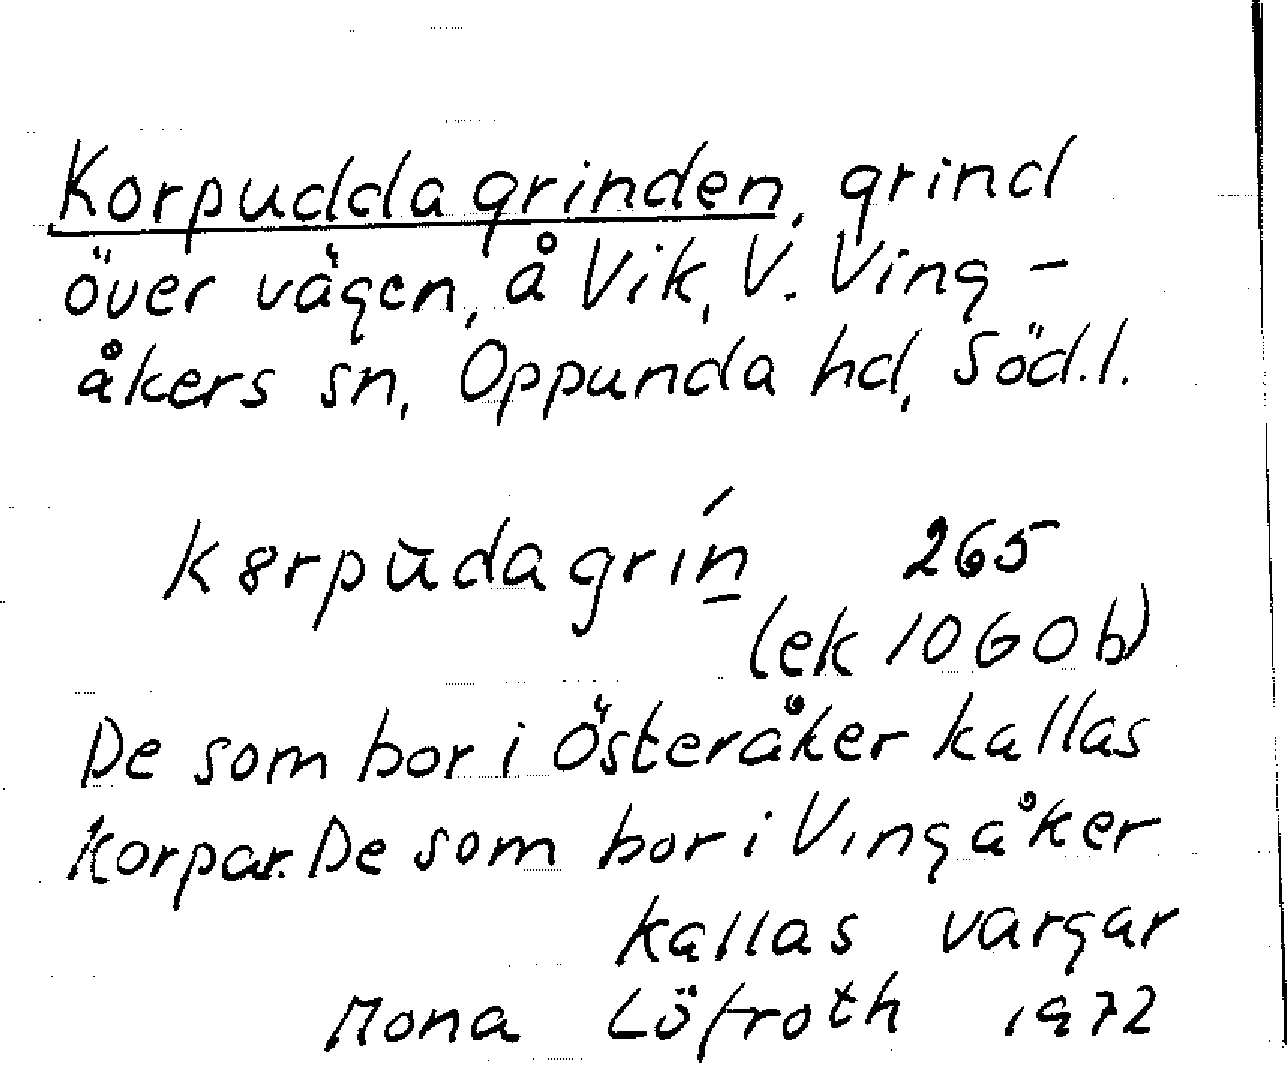 Korpuddagrinden, grind
över vägen, å Vik, V. Ving-
åkers sn, Oppunda hd, Söd.l.
k8rpūdagrín̲ 265
(ek 1060b)
De som bor i Österåker kallas
korpar. De som bor i Vingåker
kallas vargar
Mona Löfroth 1972